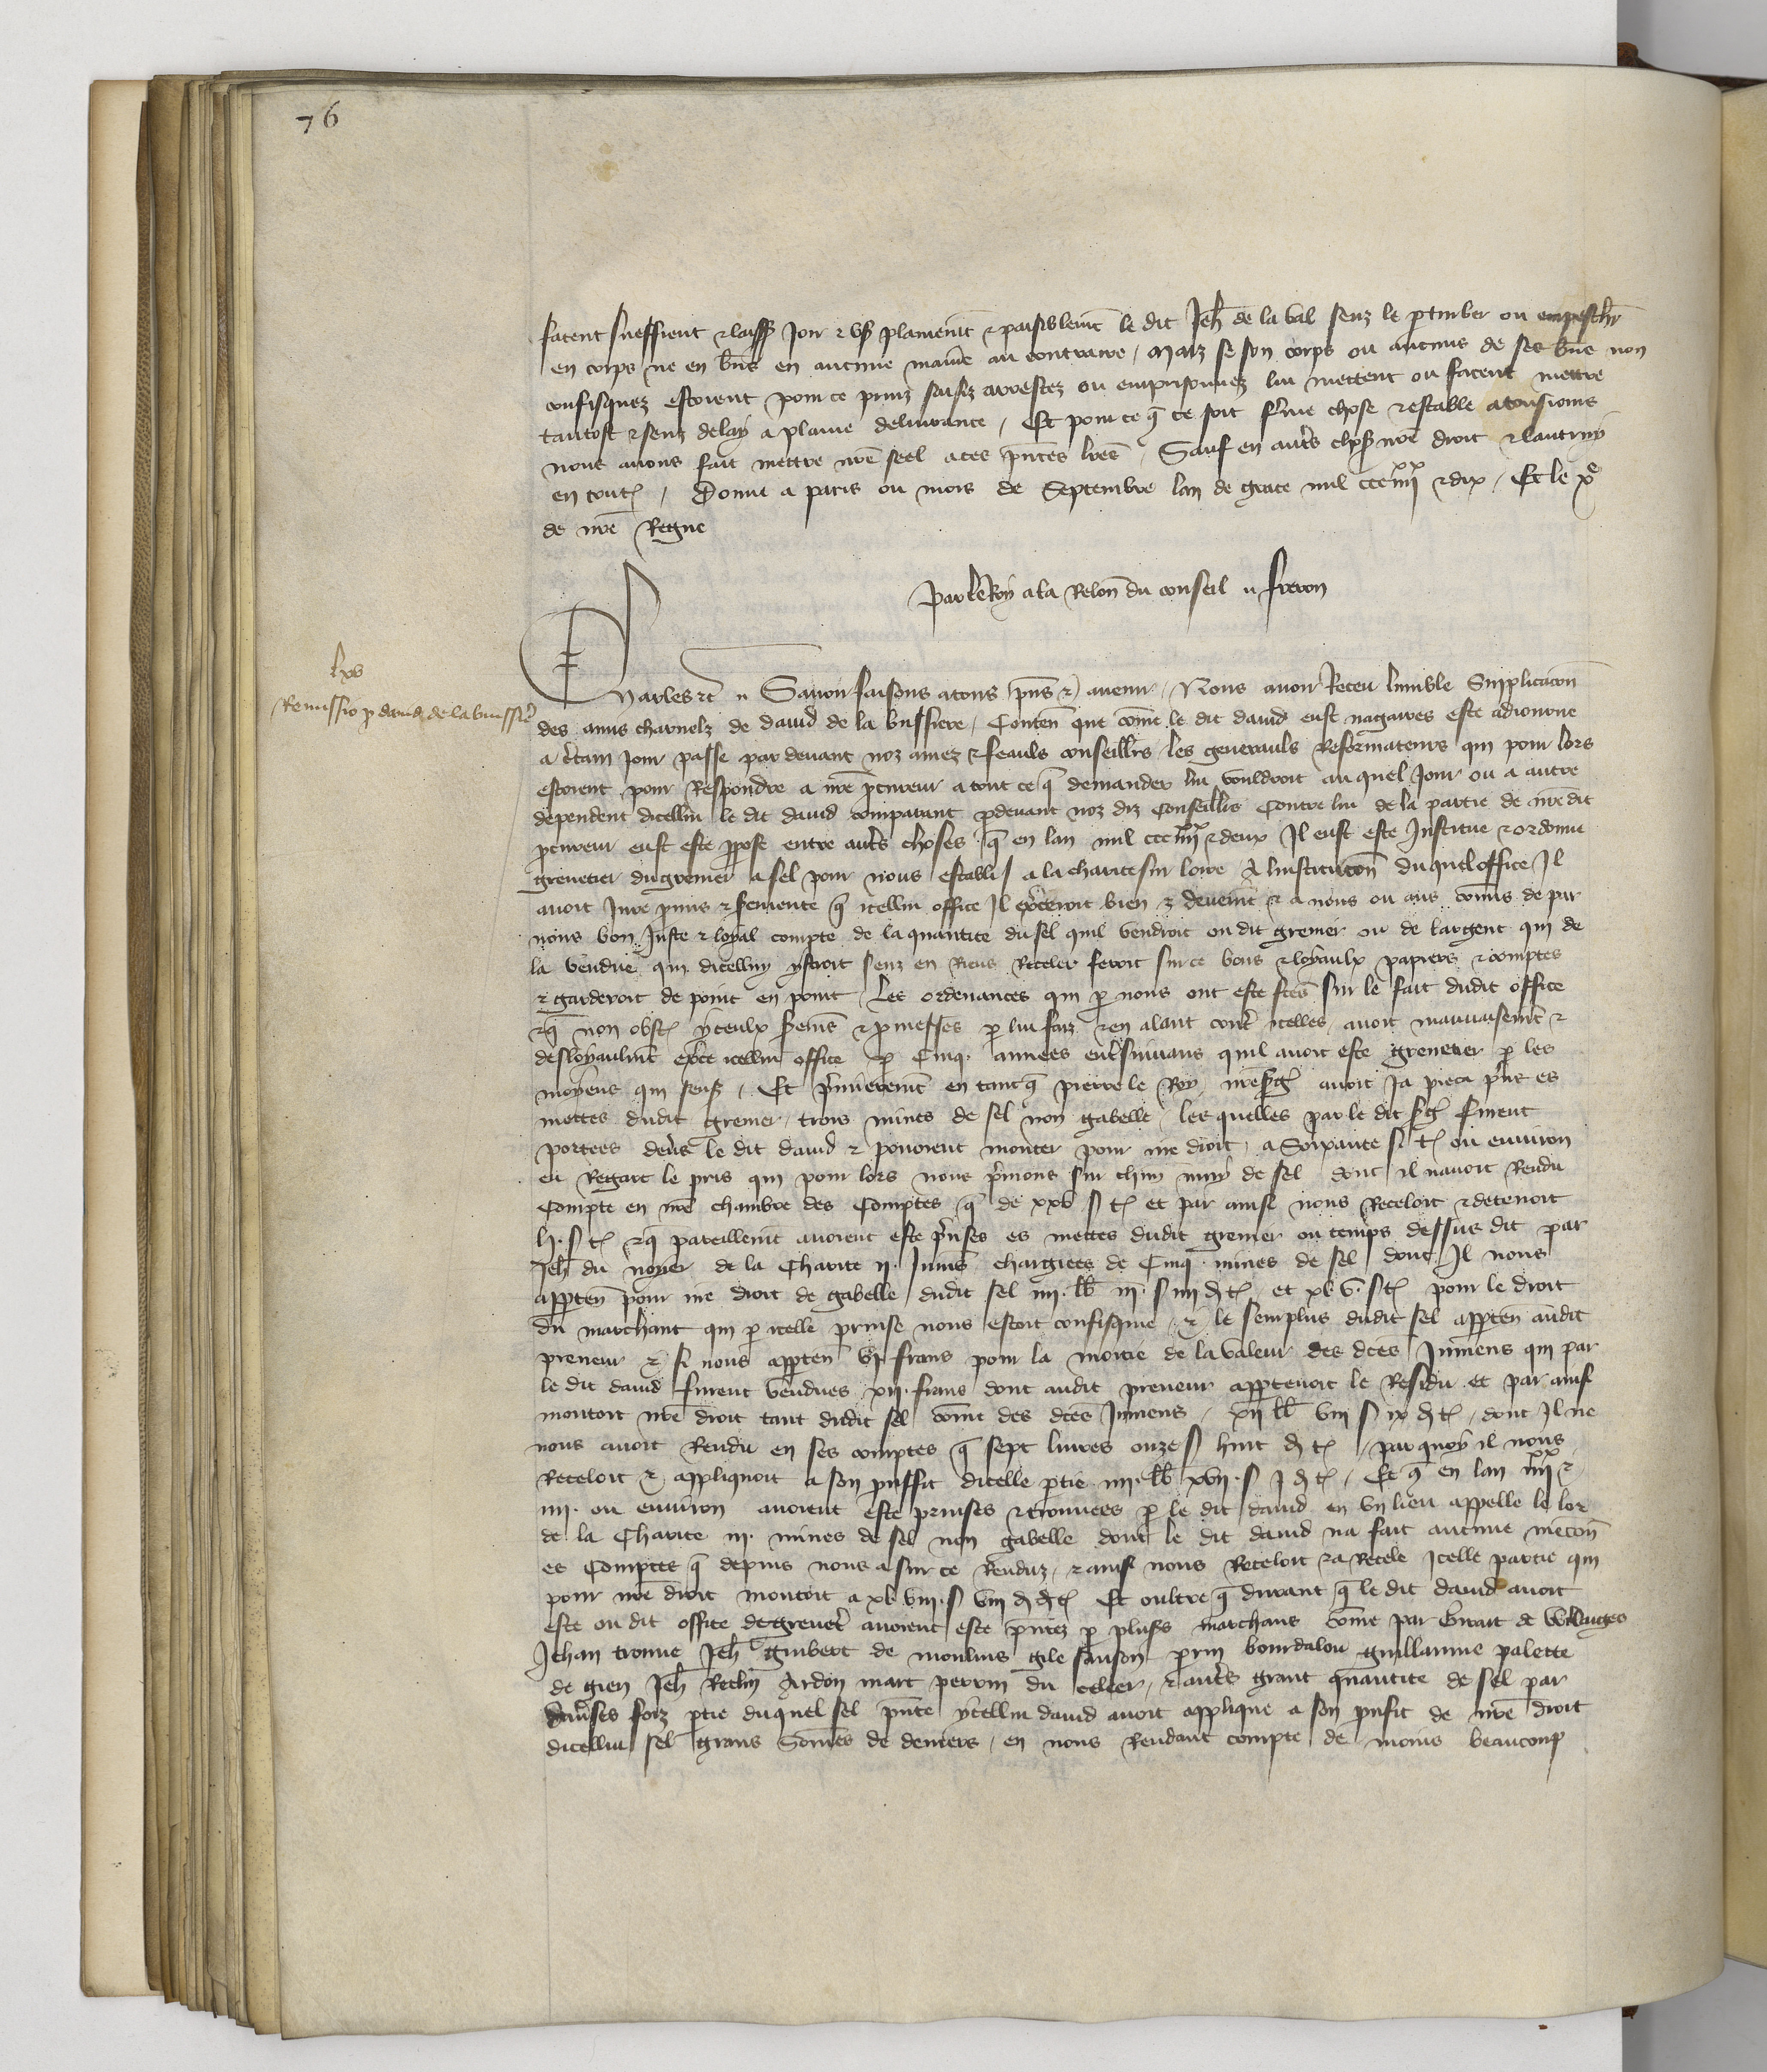 76
facent sueffrent & laiss joir & us plainemt & paisiblemt le dit Jeh de la Val senz le pturber ou empescher
en corps ne en bns en aucune manie au contraire / Maiz se son corps ou aucuns de ses bns non
confisquez estoient pour ce prins saisiz arrestez ou emprisonnez lui mettent ou facent mettre
tantost & senz delay a plaine delivrance / Et pour ce q ce soit ferme chose & estable a tousjours
nous avons fait mettre nre seel a ces pntes lres / Sauf en autres choses nre droit & lautruy
en toutes / Donne a paris ou mois de Septembre lan de grace mil ccc iiii xx & dix / Et le xe
de nre Regne
Par le Roy a la Relon du conseil // freron
lxv
Remissio p david de la buissiere
Charles etc // Savoir faisons a tous pns & avenir / Nous avoir Receu lumble Supplicacon
des amis charnelz de david de la buissiere / Conten que come le dit david eust nagaires este adjourne
a certain jour passe par devant noz amez & feauls conseillers les generauls Reformateurs qui pour lors
estoient pour Respondre a nre pcureur a tout ce q demander lui vouldroit au quel jour ou a autre
dependent dicellui le dit david comparant pdevant noz diz Conseillers Contre lui de la partie de nredit
pcureur eust este ppose entre autres choses q en lan mil ccc iiii xx & deux Il eust este Institue & ordonne
grenetier du grenier a sel pour nous establi a la charite sur loire A linstitucon du quel office Il
avoit Jure pmis & sermente q icellui office Il exceroit bien & deuemt & a nous ou aus comis de par
nous bon Juste & loyal compte de la quantite du sel quil vendroit ou dit grenier ou de largent qui de
la vendue qui dicelluy ystroit senz en Riens Receler feroit sur ce bons & loyaulx papiers & comptes
& garderoit de point en point Les ordenances qui p nous ont este fces sur le fait dudit office
& q non obst yceulx sermens & pmesses p lui faiz & en alant contre icelles avoit mauvaisemt &
desloyaulmt exce icellui office p Cinq annees entresuivans quil avoit este grenetier p les
moyens qui senss / Et premierement en tant q pierre le Roy nre sergt avoit ja pieca prins es
mettes dudit grenier trois mines de sel non gabelle / les quelles par le dit sergt furent
portees devers le dit david & povoient monter pour nre droit a Soixante s t ou environ
eu Regart le pris qui pour lors nous prenions sur chun muy de sel dont il navoit Rendu
Compte en nre chambre des Comptes q de xxv s t et par ainsi nous Receloit & detenoit
s t & q pareillemt avoient este prinses es mettes dudit grenier ou temps dessus dit par
Jeh du noyer de la Charite ii Jumens chargiees de Cinq mines de sel dont Il nous
apparten pour nre droit de gabelle dudit sel iiii lb iii s iiii d t et xlv s t pour le droit
du marchant qui p icelle prinse nous estoit confisquie & le seurplus dudit sel apparten audit
preneur & si nous apparten vi frans pour la moitie de la valeur des dces Jumens qui par
le dit david furent vendues xii frans dont audit preneur appartenoit le Residu et par ainsi
montoit nre droit tant dudit sel come des dces Jumens / xii lb viii s ix d t / dont Il ne
nous avoit Rendu en ses comptes q sept livres onze s huit d t / par quoy il nous
Receloit & appliquoit a son prouffit dicelle ptie iiii lb xvii s i d t / Et q en lan iiii xx &
iiii ou environ avoient este prinses & trouvees p le dit david en un lieu appelle le lor
de la Charite iii mines de sel non gabelle dont le dit david na fait aucune mencon
es Comptes q depuis nous a sur ce Renduz / & ainsi nous Receloit & a Recele icelle partie qui
pour nre droit montoit a xlviii s viii d t Et oultre q durant q le dit david avoit
este ou dit office de grenetier avoient este pntez p plusrs marchans come par
Jehan tronne Jeh guibert de moulins gile sanson prin bourdalou guillaume palette
de gien Jeh Reclin Ardon mart perrin du celier / & autres grant quantite de sel par
diverses foiz ptie duquel sel pnte ycellui david avoit applique a son prufit de nre droit
dicellui sel grans Somes de deniers / en nous Rendant compte de moins beaucoup